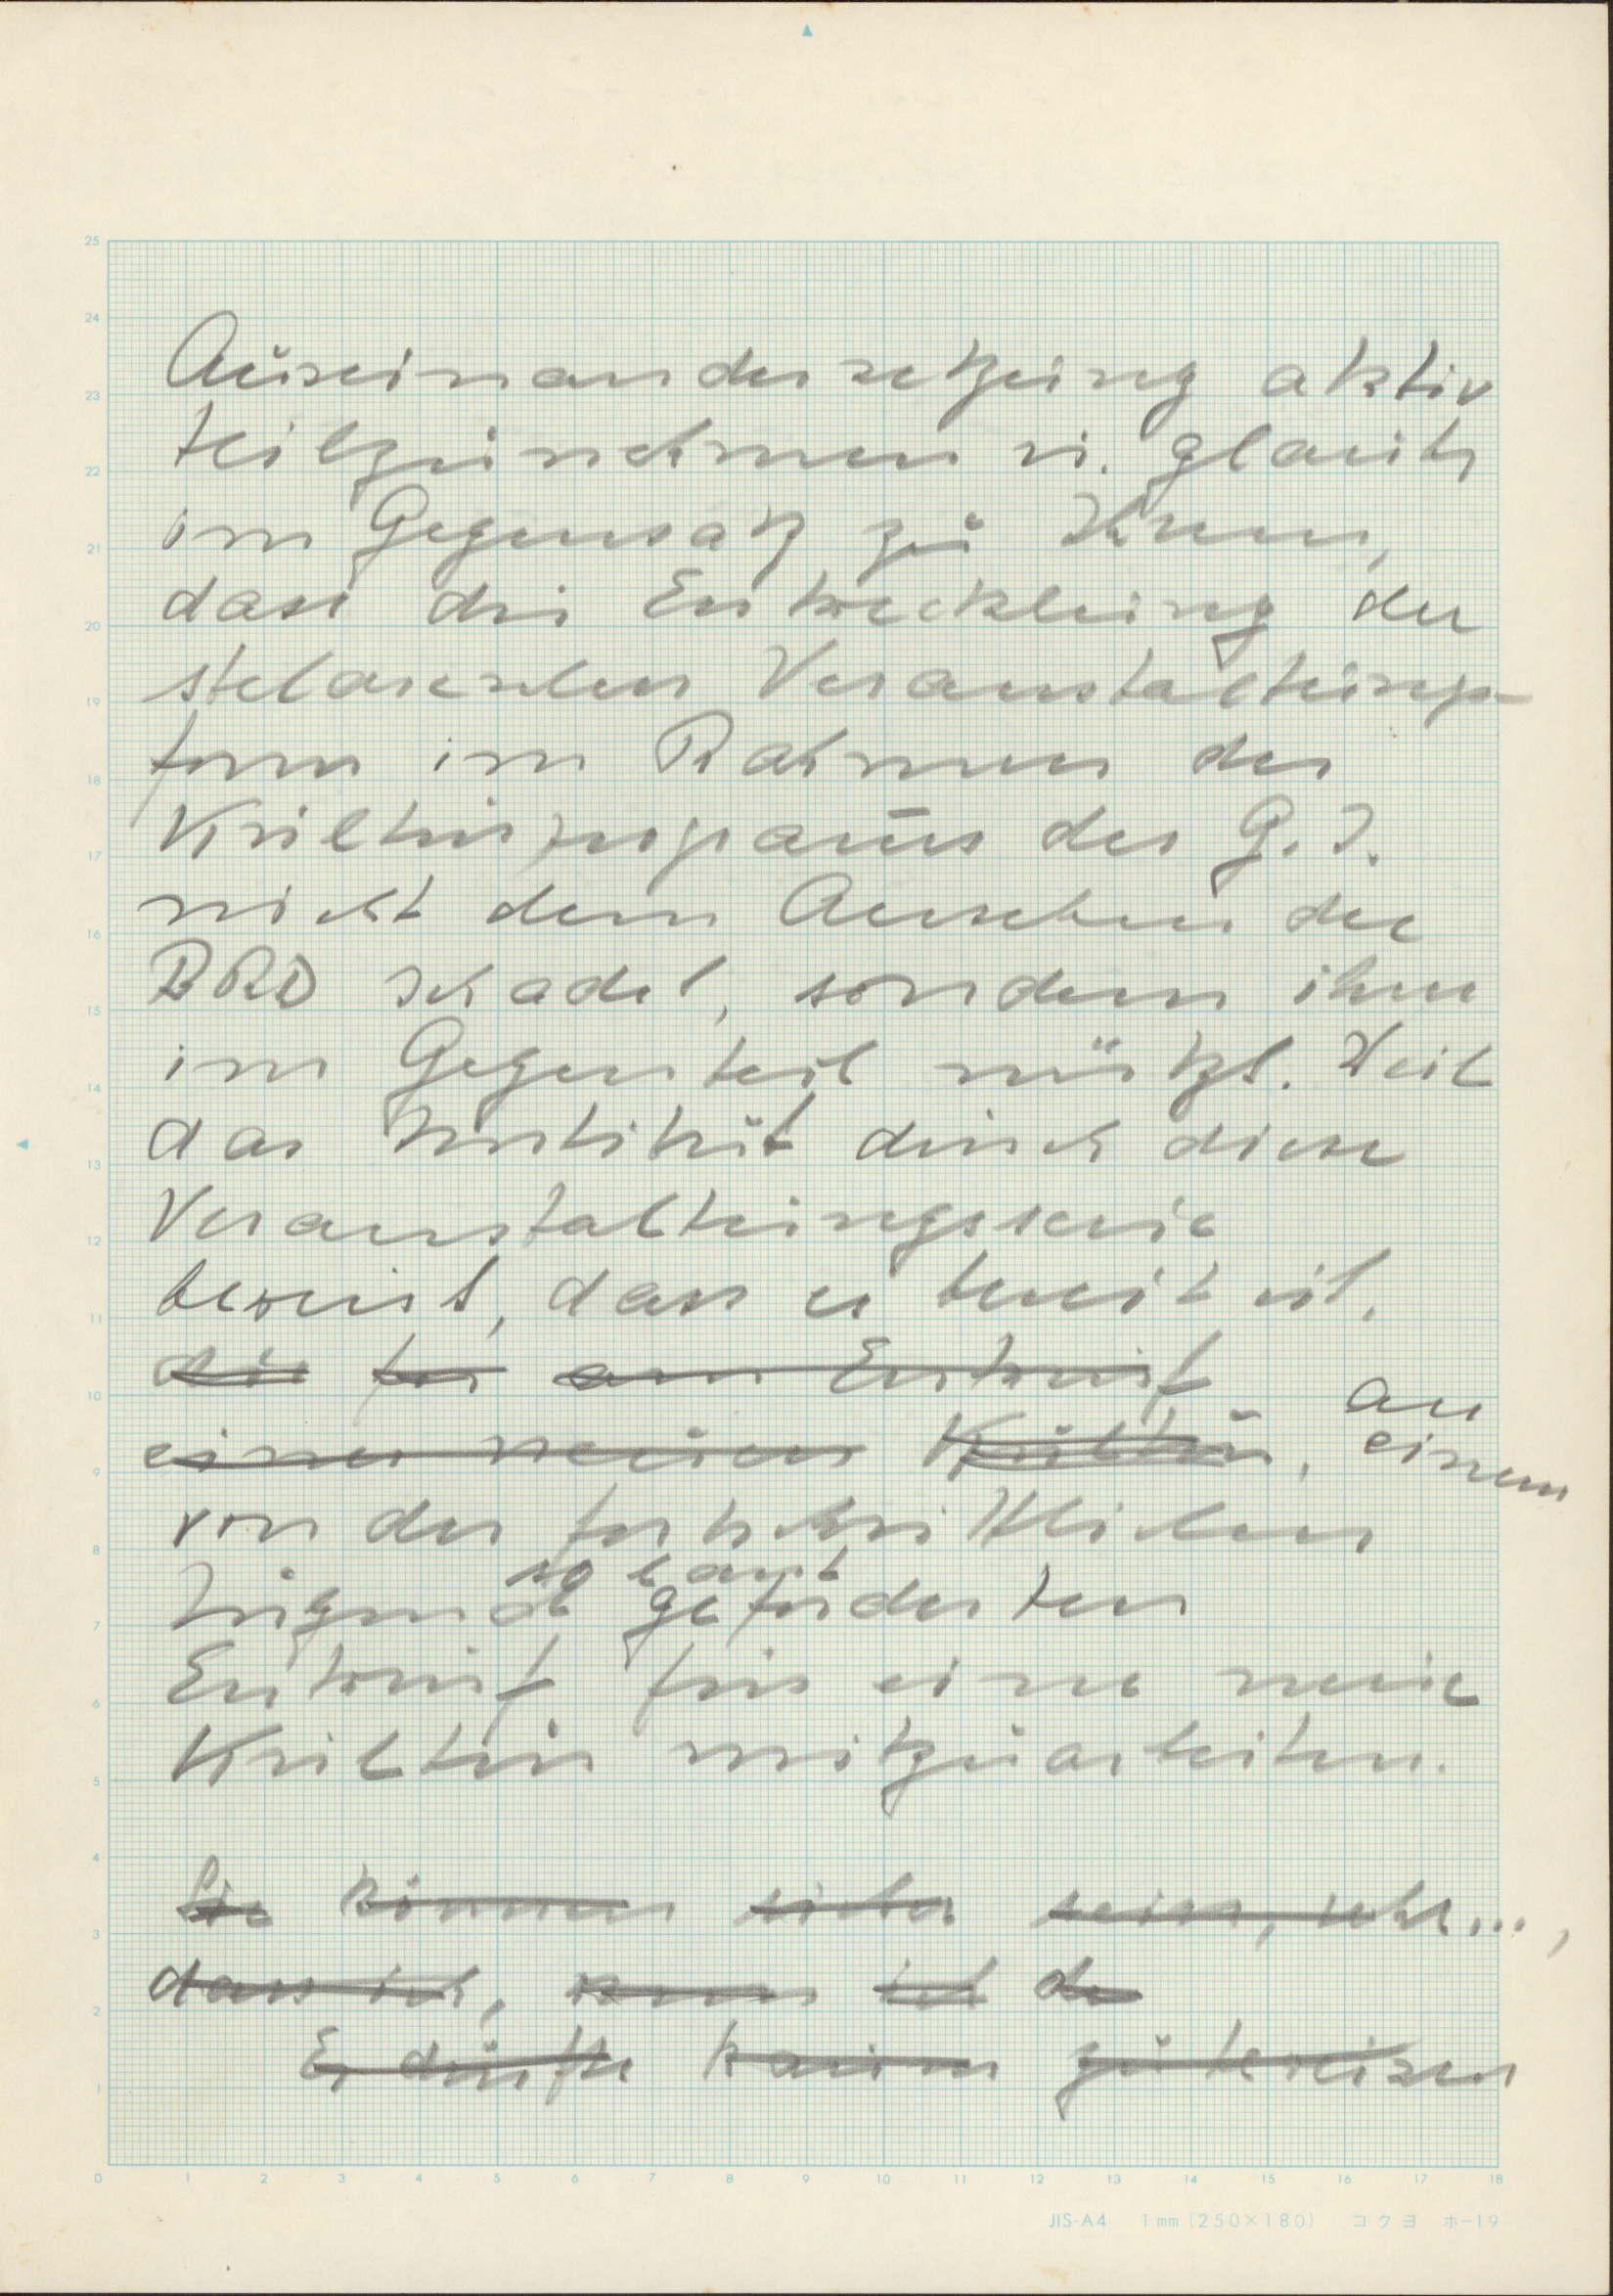 Auseinandersetzung aktiv
teilzunehmen u. glaub
im Gegensatz zu Ihnen,
dass die Entwicklung der
stelaischen Veranstaltungs-
form im Rahmen des
Kulturprograms des G.I.
nicht dem Ansehen der
BRD schadet, sondern ihm
im Gegenteil nützt. Weil
das Institut durch diese
Veranstaltungsserie
beweist, dass es bereit ist,
die für am Entwurf
einer neuen Kultur, an
einem
von der fortschrittlichen
so laut
Jugend geforderten
Entwurf für eine neue
Kultur mitzuarbeiten.
Sie können sicher sein, sehr...,
dass ich, wenn ich de
Es dürfte kaum zu beweisen
25
24
23
22
21
20
19
18
17
16
15
14
13
12
11
10
9
8
7
6
5
4
3
2
1
0 1 2 3 4 5 6 7 8 9 10 11 12 13 14 15 16 17 18
JIS-A4 1mm (250×180) コクヨ ホ-19